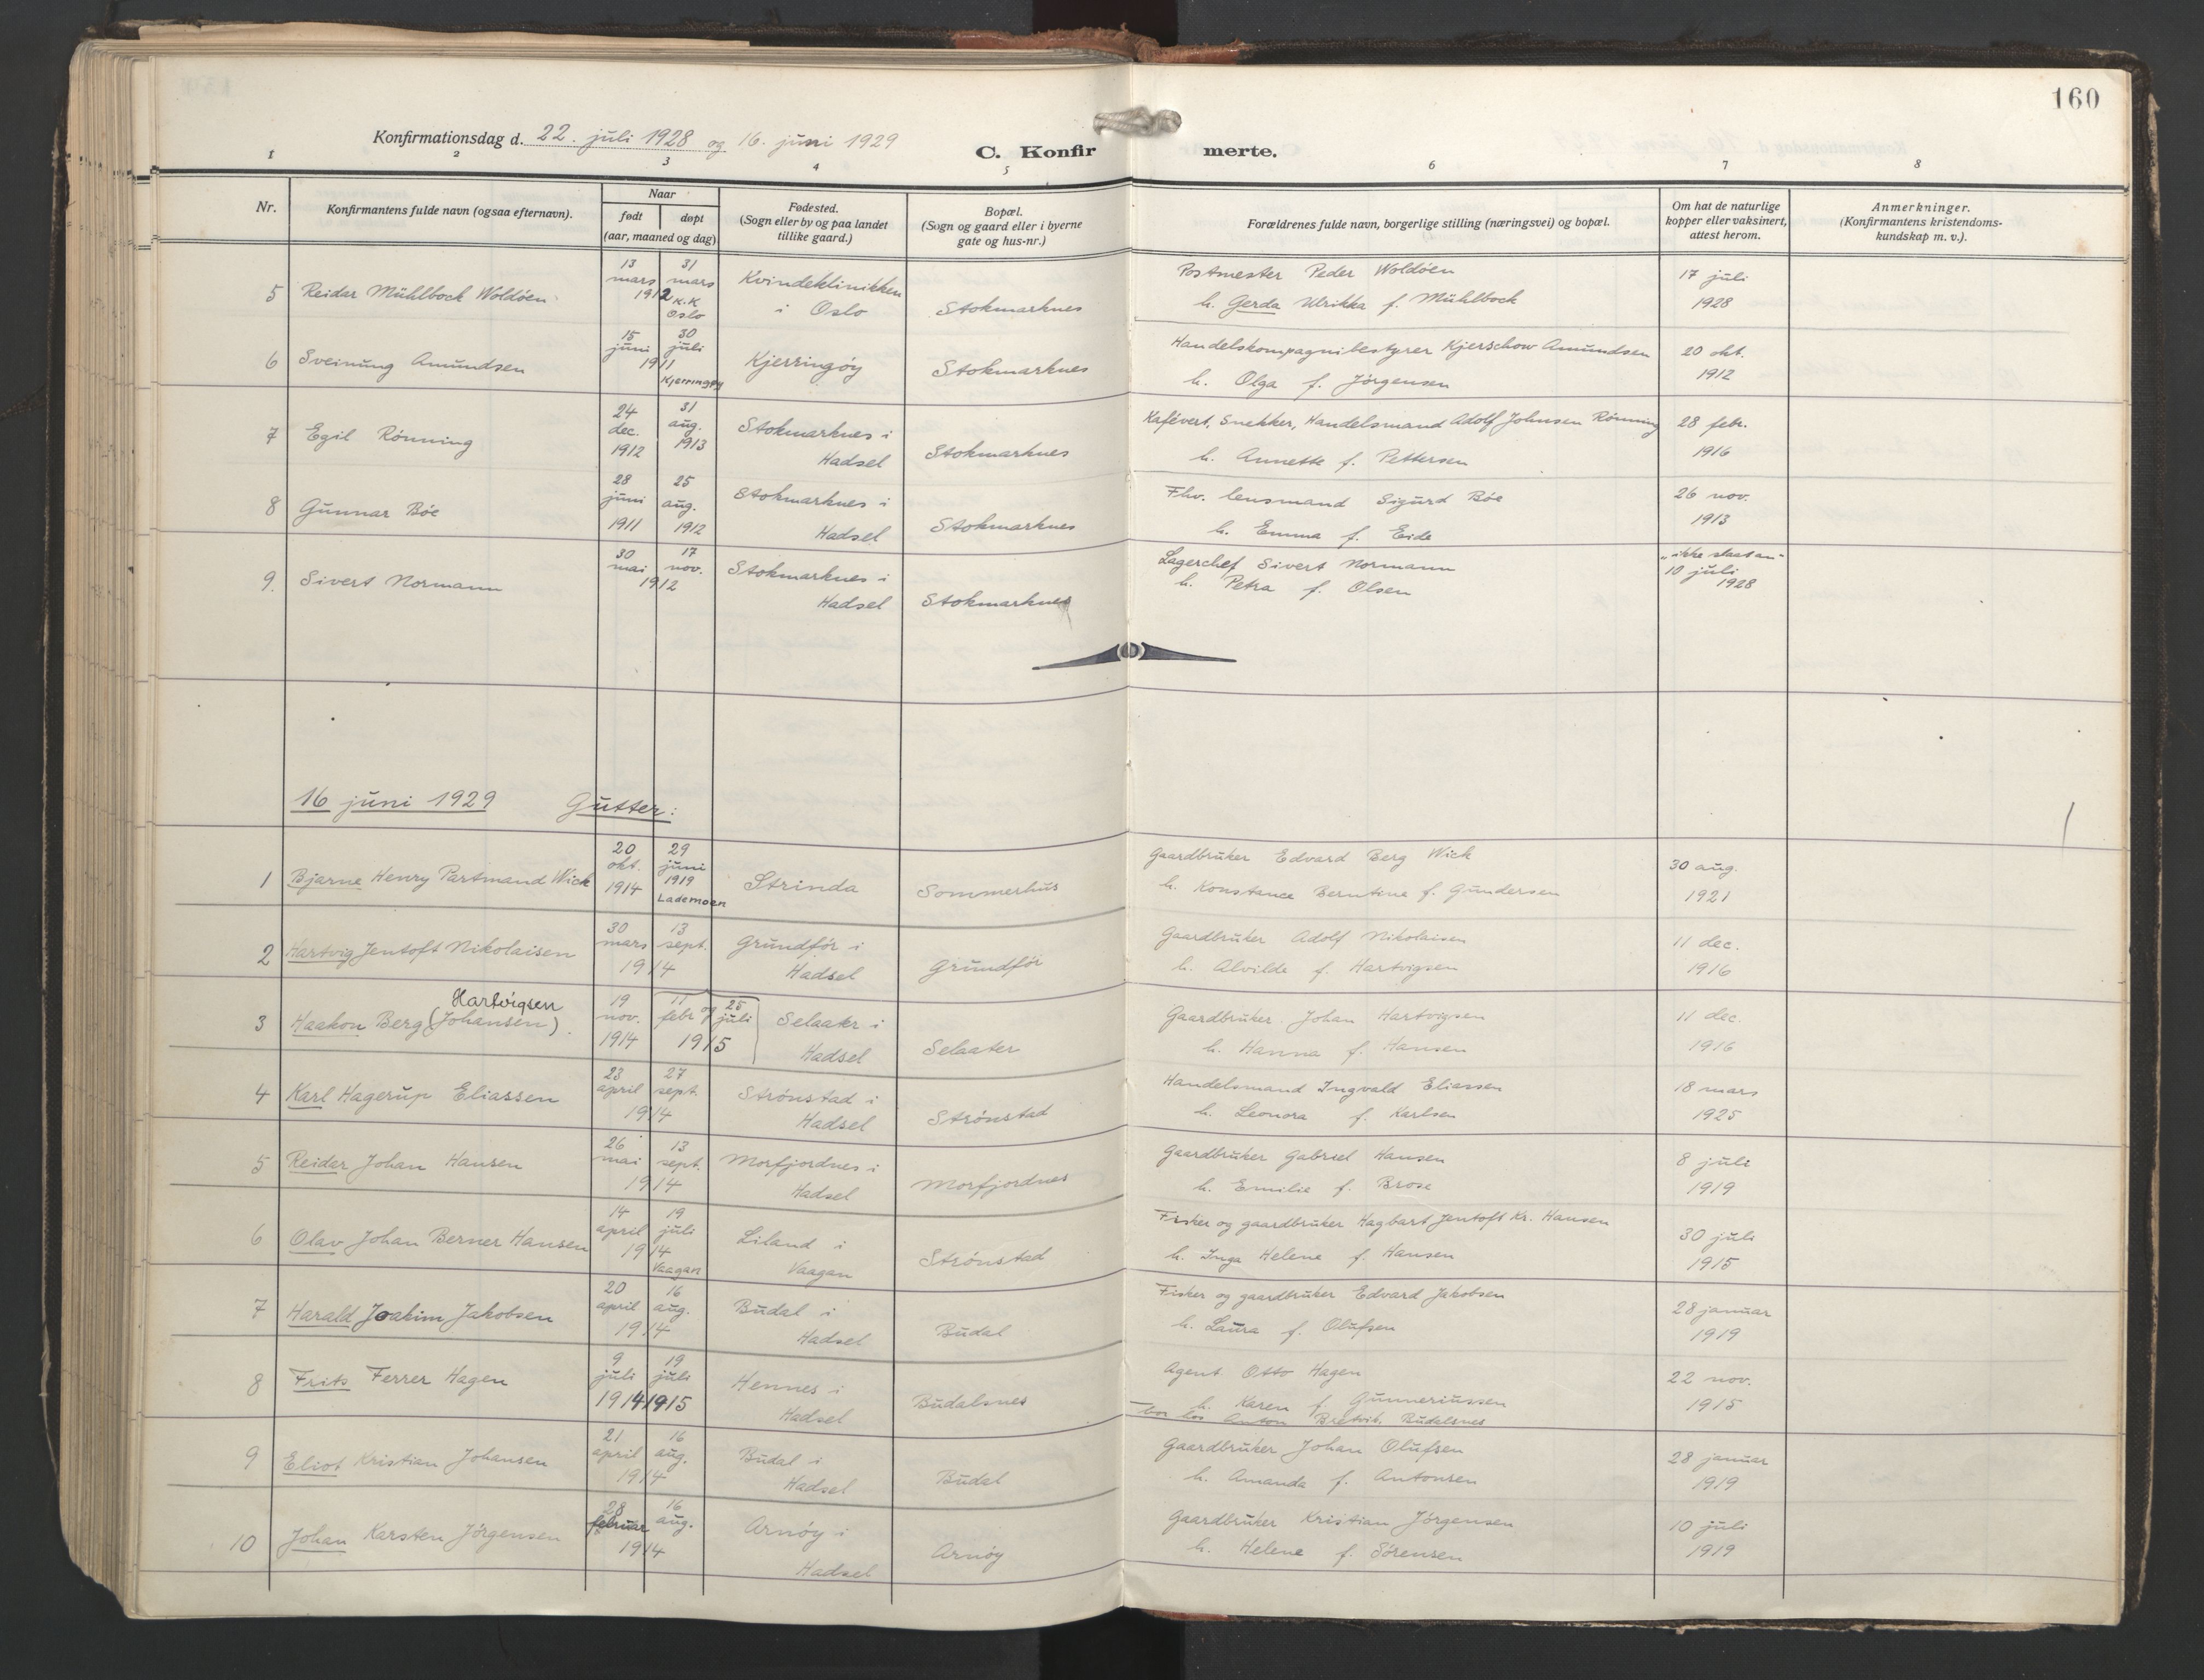 160
Konfirmationsdag d. 22. juli 1928 og 16. juni 1929
C. Konfirmerte.
1 2 3 4 5 6 7 8
Nr.
Konfirmantens fulde navn (ogsaa efternavn).
Naar
født
døpt
(aar, maaned og dag)
Fødested.
(Sogn eller by og paa landet
tillike gaard.)
Bopæl.
(Sogn og gaard eller i byerne
gate og hus-nr.)
Forældrenes fulde navn, borgerlige stilling (næringsvei) og bopæl.
Om hat de naturlige
kopper eller vaksinert,
attest herom.
Anmerkninger.
(Konfirmantens kristendoms-
kundskap m. v.).
5 Reidar Mühlbock Woldöen 13 mars 31 mars 1912 K.K Oslo
Kvindeklinikken
i Oslo
Stokmarknes
Postmester Peder Woldöen
h. Gerda Ulrikka f. Mühlbock
17 juli
1928
6 Sveinung Amundsen 15 juni 30 juli 1911 Kjerringøy
Kjerringöy
Stokmarknes
Handelskompagnibestyrer Kjerschow Amundsen
h. Olga f. Jörgensen
20 okt.
1912
7 Egil Rönning 24 dec. 1912 31 aug. 1913
Stokmarknes i
Hadsel
Stokmarknes
Kafévert, Snekker, Handelsmand Adolf Johnsen Rönning
h. Annette f. Pettersen
28 febr.
1916
8 Gunnar Böe 28 juni 1911 25 aug. 1912
Stokmarknes i
Hadsel
Stokmarknes
Fhv. lensmand Sigurd Böe
h. Emma f. Eide
26 nov.
1913
9. Sivert Normann 30 mai 17 nov. 1912
Stokmarknes i
Hadsel
Stokmarknes
Lagerchef Sivert Normann
h. Petra f. Olsen
"ikke slaat an"
10 juli
1928
16 juni 1929 Gutter:
1 Bjarne Henry Partmand Wick 20 okt. 1914 29 juni 1919 Lademoen
Strinda
Sommerhus
Gaardbruker Edvard Berg Wick
h. Konstance Berntine f. Gundersen
30 aug.
1921
2 Hartvig Jentoft Nikolaisen 30 mars 13 sept. 1914
Grundför i
Hadsel
Grundför
Gaardbruker Adolf Nikolaisen
h. Alvilde f. Hartvigsen
11 dec.
1916
Hartvigsen
3 Haakon Berg (Johansen). 19 nov. 1914 11 febr og 25 juli 1915
Selaatr i
Hadsel
Selaater
Gaardbruker Johan Hartvigsen
h. Hanna f. Hansen
11 dec.
1916
4 Karl Hagerup Eliassen 23 april 27 sept. 1914
Strönstad i
Hadsel
Strönstad
Handelsmand Ingvald Eliassen
h. Leonora f. Karlsen
18 mars
1925
5 Reidar Johan Hansen 26 mai 13 sept. 1914
Morfjordnes i
Hadsel
Morfjordnes
Gaardbruker Gabriel Hansen
h. Emilie f. Brose
8 juli
1919
6 Olav Johan Berner Hansen 14 april 19 juli 1914 Vaagan
Liland i
Vaagan
Strönstad
Fisker og gaardbruker Hagbart Jentoft Kr. Hansen
h. Inga Helene f Hansen
30 juli
1915
7 Harald Joakim Jakobsen 20 april 16 aug. 1914
Budal i
Hadsel
Budal
Fisker og gaardbruker Edvard Jakobsen
h. Laura f. Olufsen
28 januar
1919
8 Frits Ferrer Hagen 9 juli 1914 19 juli 1915
Hennes i
Hadsel
Budalsnes
Agent Otto Hagen
h. Karen f. Gunneriussen
bor hos Anton Bretvik, Budalsnes
22 nov.
1915
9 Eliot Kristian Johansen 21 april 16 aug. 1914
Budal i
Hadsel
Budal
Gaardbruker Johan Olufsen
h. Amanda f. Antonsen
28 januar
1919
10 Johan Karsten Jörgensen 28 februar 16 aug. 1914
Arnöy i
Hadsel
Arnöy
Gaardbruker Kristian Jörgensen
h. Helene f. Sörensen
10 juli
1919